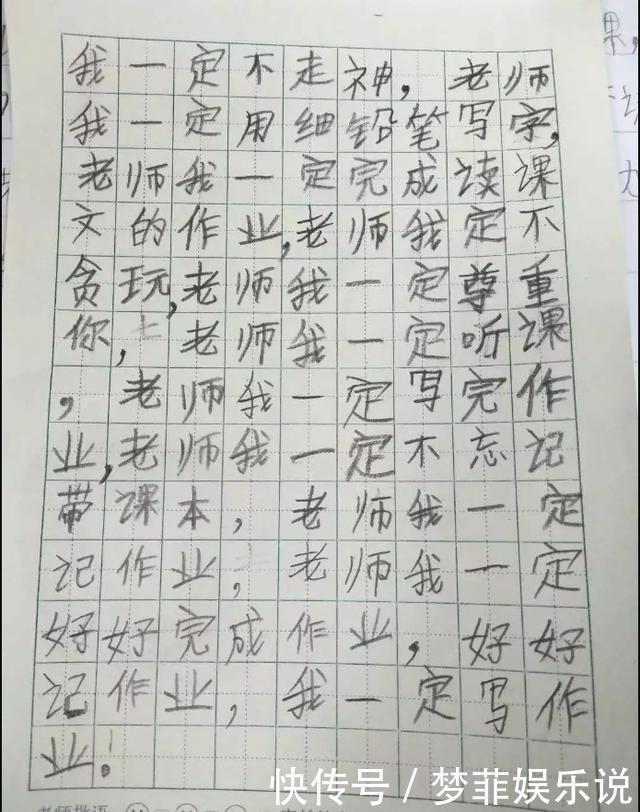 我一定不走神,老师
我一定用细铅笔写字,
老师我一定完成读课
文的作业,老师我定不
贪玩,老师我一定尊重
你,老师我一定听课
,老师我一定写完作
业,老师我一定不忘记
带课本,老师我一定
记作业,老师我一定
好好完成作业,好好
记作业,我一定写作
业!
老师批语
快传号/梦菲娱乐说